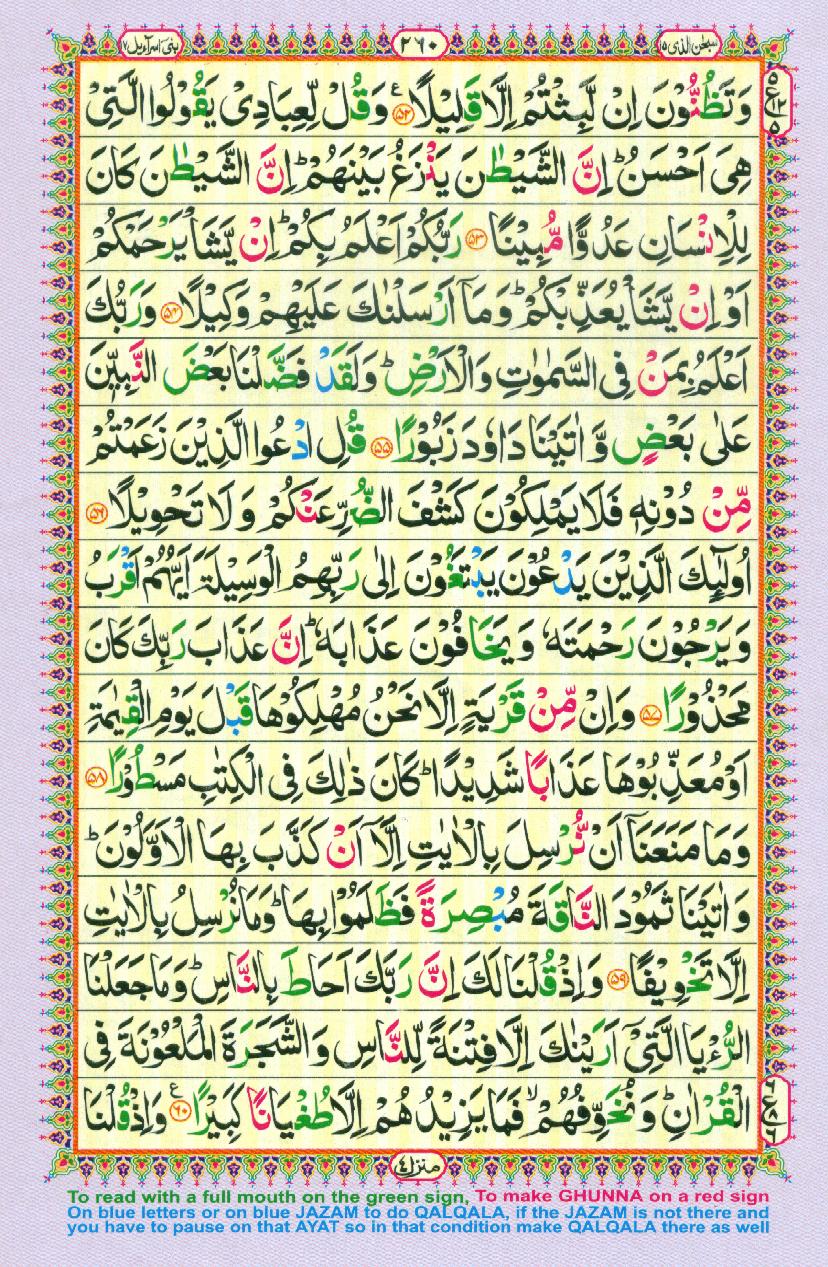 سبحٰن الذی ۱۵
۲۶۰
بنی اسرآءیل ۱۷
وَتَظُنُّوْنَ اِنْ لَّبِثْتُمْ اِلَّا قَلِیْلًا ﴿۵۲﴾ وَقُلْ لِّعِبَادِیْ یَقُوْلُوا الَّتِیْ
هِیَ اَحْسَنُ ؕ اِنَّ الشَّیْطٰنَ یَنْزَغُ بَیْنَهُمْ ؕ اِنَّ الشَّیْطٰنَ كَانَ
لِلْاِنْسَانِ عَدُوًّا مُّبِیْنًا ﴿۵۳﴾ رَبُّكُمْ اَعْلَمُ بِكُمْ ؕ اِنْ یَّشَاْ یَرْحَمْكُمْ
اَوْ اِنْ یَّشَاْ یُعَذِّبْكُمْ ؕ وَمَاۤ اَرْسَلْنٰكَ عَلَیْهِمْ وَكِیْلًا ﴿۵۴﴾ وَرَبُّكَ
اَعْلَمُ بِمَنْ فِی السَّمٰوٰتِ وَالْاَرْضِ ؕ وَلَقَدْ فَضَّلْنَا بَعْضَ النَّبِیّٖنَ
عَلٰی بَعْضٍ وَّ اٰتَیْنَا دَاوٗدَ زَبُوْرًا ﴿۵۵﴾ قُلِ ادْعُوا الَّذِیْنَ زَعَمْتُمْ
مِّنْ دُوْنِهٖ فَلَا یَمْلِكُوْنَ كَشْفَ الضُّرِّ عَنْكُمْ وَ لَا تَحْوِیْلًا ﴿۵۶﴾
اُولٰٓىِٕكَ الَّذِیْنَ یَدْعُوْنَ یَبْتَغُوْنَ اِلٰی رَبِّهِمُ الْوَسِیْلَةَ اَیُّهُمْ اَقْرَبُ
وَیَرْجُوْنَ رَحْمَتَهٗ وَ یَخَافُوْنَ عَذَابَهٗ ؕ اِنَّ عَذَابَ رَبِّكَ كَانَ
مَحْذُوْرًا ﴿۵۷﴾ وَاِنْ مِّنْ قَرْیَةٍ اِلَّا نَحْنُ مُهْلِكُوْهَا قَبْلَ یَوْمِ الْقِیٰمَةِ
اَوْ مُعَذِّبُوْهَا عَذَابًا شَدِیْدًا ؕ كَانَ ذٰلِكَ فِی الْكِتٰبِ مَسْطُوْرًا ﴿۵۸﴾
وَمَا مَنَعَنَاۤ اَنْ نُّرْسِلَ بِالْاٰیٰتِ اِلَّاۤ اَنْ كَذَّبَ بِهَا الْاَوَّلُوْنَ ؕ
وَ اٰتَیْنَا ثَمُوْدَ النَّاقَةَ مُبْصِرَةً فَظَلَمُوْا بِهَا ؕ وَمَا نُرْسِلُ بِالْاٰیٰتِ
اِلَّا تَخْوِیْفًا ﴿۵۹﴾ وَاِذْ قُلْنَا لَكَ اِنَّ رَبَّكَ اَحَاطَ بِالنَّاسِ ؕ وَمَا جَعَلْنَا
الرُّءْیَا الَّتِیْۤ اَرَیْنٰكَ اِلَّا فِتْنَةً لِّلنَّاسِ وَالشَّجَرَةَ الْمَلْعُوْنَةَ فِی
الْقُرْاٰنِ ؕ وَ نُخَوِّفُهُمْ ۙ فَمَا یَزِیْدُهُمْ اِلَّا طُغْیَانًا كَبِیْرًا ﴿۶۰﴾ وَاِذْ قُلْنَا
منزل ۴
To read with a full mouth on the green sign, To make GHUNNA on a red sign
On blue letters or on blue JAZAM to do QALQALA, if the JAZAM is not there and
you have to pause on that AYAT so in that condition make QALQALA there as well